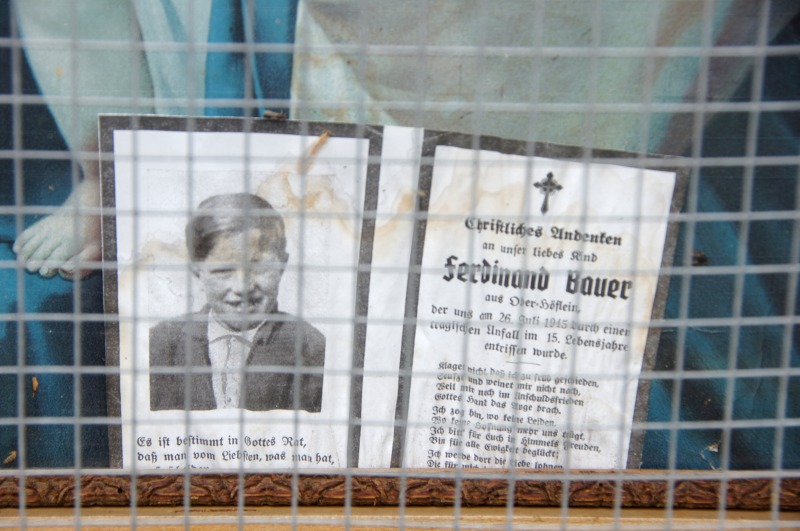 Es ist bestimmt in Gottes Rat,
daß man vom Liebsten, was man hat,
Christliches Andenken
an unser liebes Kind
Ferdinand Bauer
aus Ober-Höflein,
der uns am 26. Juli 1945 durch einen
tragischen Unfall im 15. Lebensjahre
entrissen wurde.
Klaget nicht, daß ich zu früh geschieden,
und weinet mir nicht nach,
Weil mir noch im Unschuldsfrieden
Gottes Hand das Auge brach.
Ich zog hin, wo keine Leiden,
Wo keine Hoffnung mehr uns trügt,
Ich bitt' für Euch in Himmels Freuden,
Bin für alle Ewigkeit beglückt;
Ich werde dort die Liebe lohnen,
Die für